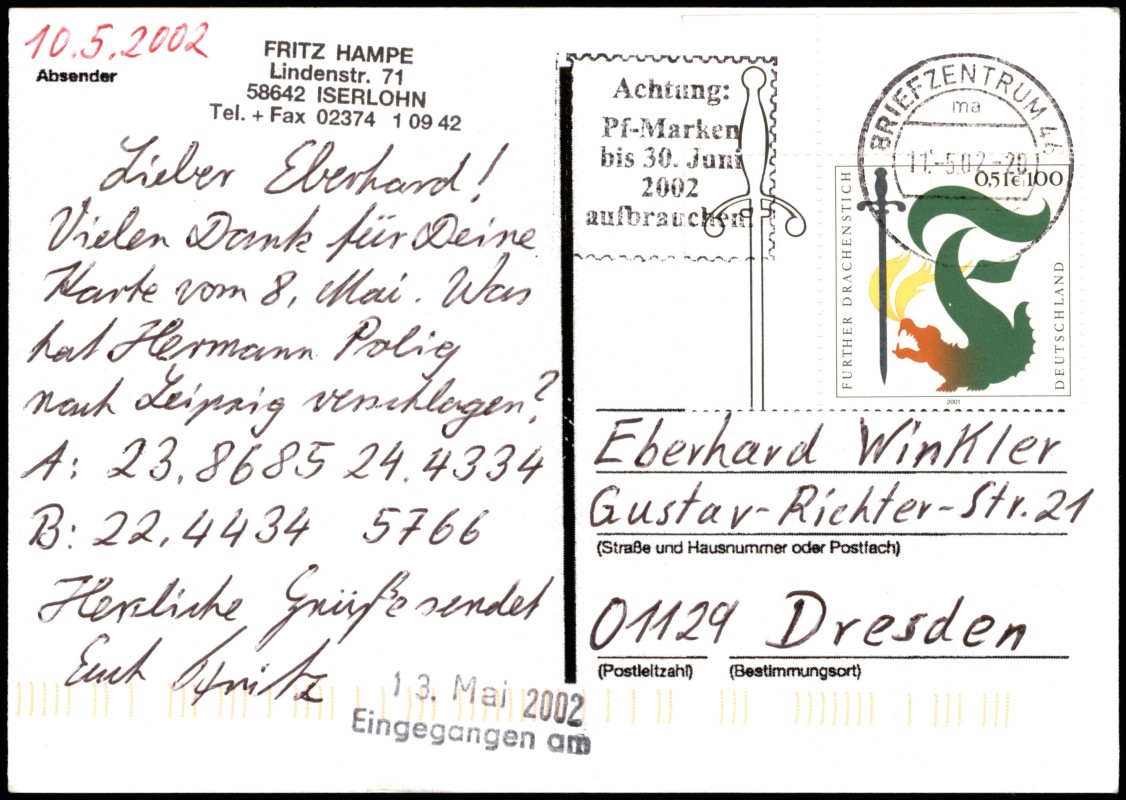 10.5.2002
Absender
FRITZ HAMPE
Lindenstr. 71
58642 ISERLOHN
Tel. + Fax 02374 1 09 42
Lieber Eberhard!
Vielen Dank für Deine
Karte vom 8. Mai. Was
hat Hermann Polig
nach Leipzig verschlagen?
A: 23.8685 24.4334
B: 22.4434 5766
Herzliche Grüße sendet
Euch Fritz
13. Mai 2002
Eingegangen am
Achtung:
Pf-Marken
bis 30. Juni
2002
aufbrauchen!
BRIEFZENTRUM
ma
11.-5.02.-20
0,51€ 100
FURTHER DRACHENSTICH
DEUTSCHLAND
2001
Eberhard Winkler
Gustav-Richter-Str. 21
(Straße und Hausnummer oder Postfach)
01129 Dresden
(Postleitzahl) (Bestimmungsort)